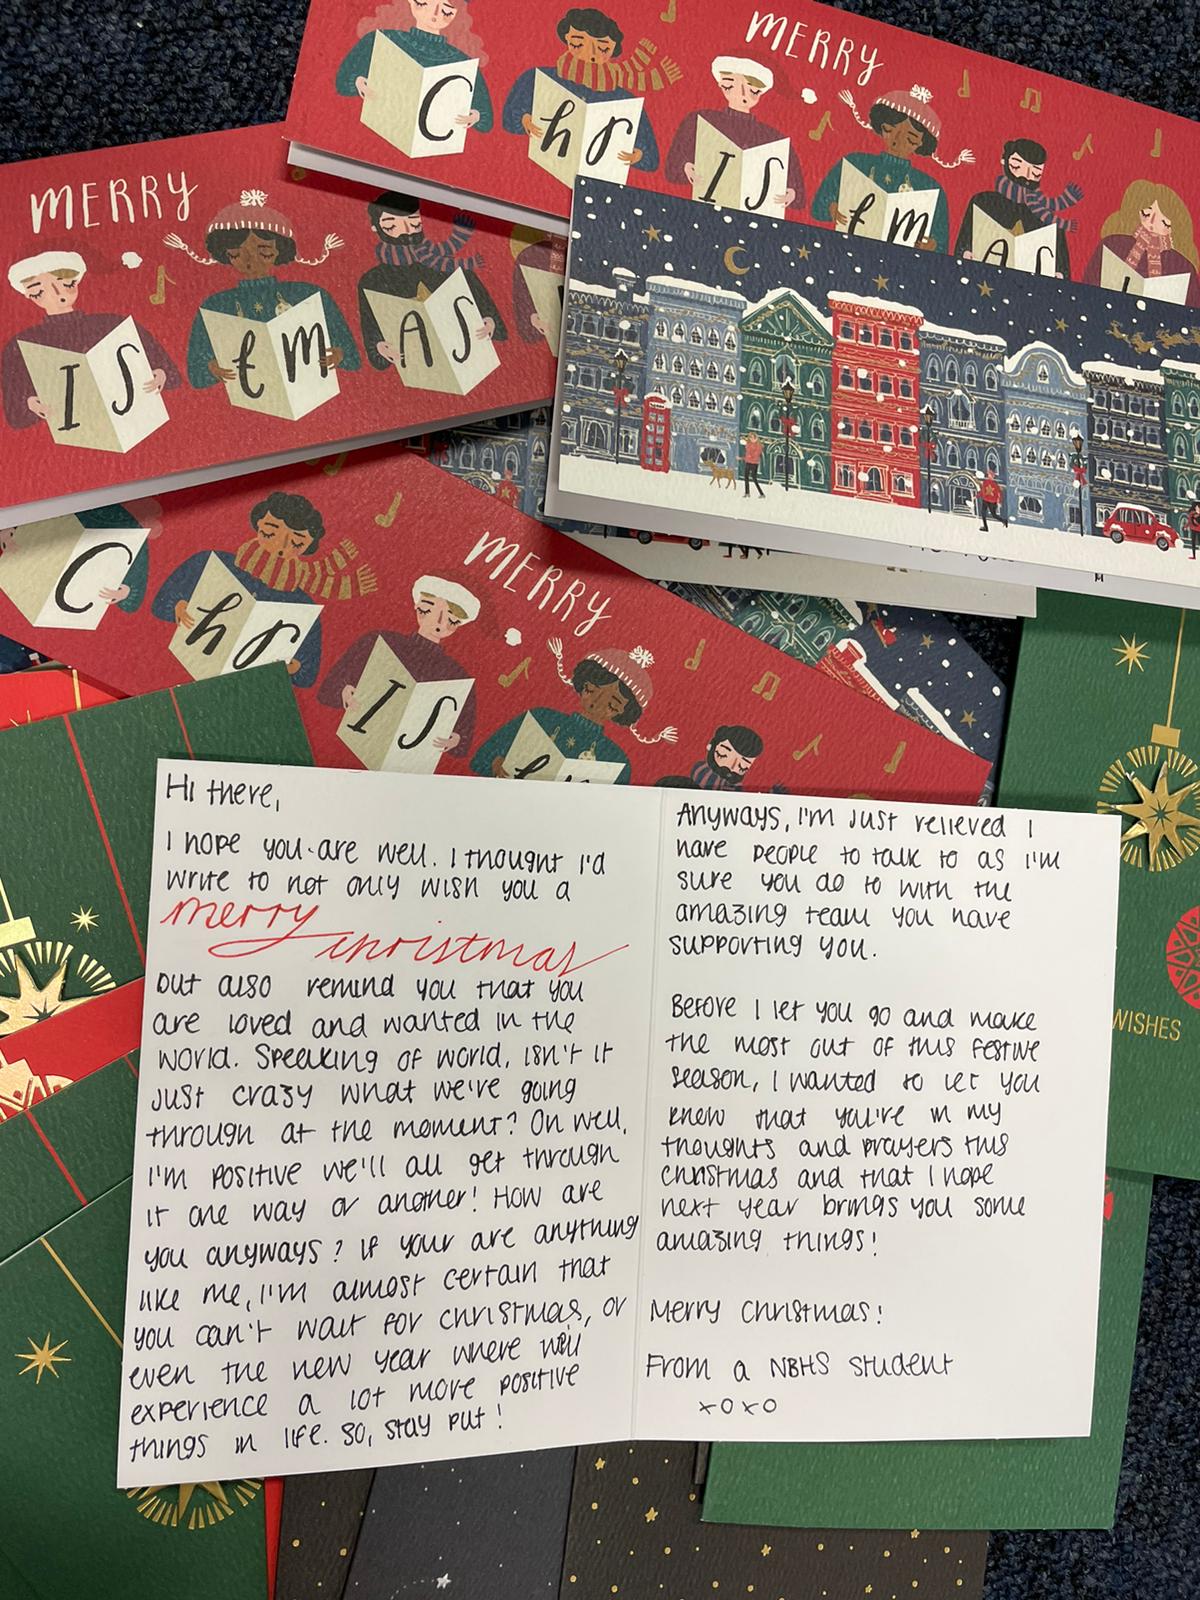 MERRY
C hr IS tm AS
MERRY
IS tm AS
MERRY
C hr IS
WISHES
Hi there,
I hope you are well. I thought I'd
write to not only wish you a
merry
christmas
but also remind you that you
are loved and wanted in the
world. Speaking of world, isn't it
just crazy what we're going
through at the moment? Oh well,
I'm positive we'll all get through
it one way or another! How are
you anyways? If your are anything
like me, I'm almost certain that
you can't wait for christmas, or
even the new year where we'll
experience a lot more positive
things in life. So, stay put!
Anyways, I'm just relieved I
have people to talk to as I'm
sure you do to with the
amazing team you have
supporting you.
Before I let you go and make
the most out of this festive
season, I wanted to let you
know that you're in my
thoughts and prayers this
christmas and that I hope
next year brings you some
amazing things!
Merry Christmas!
From a NBHS student
xoxo